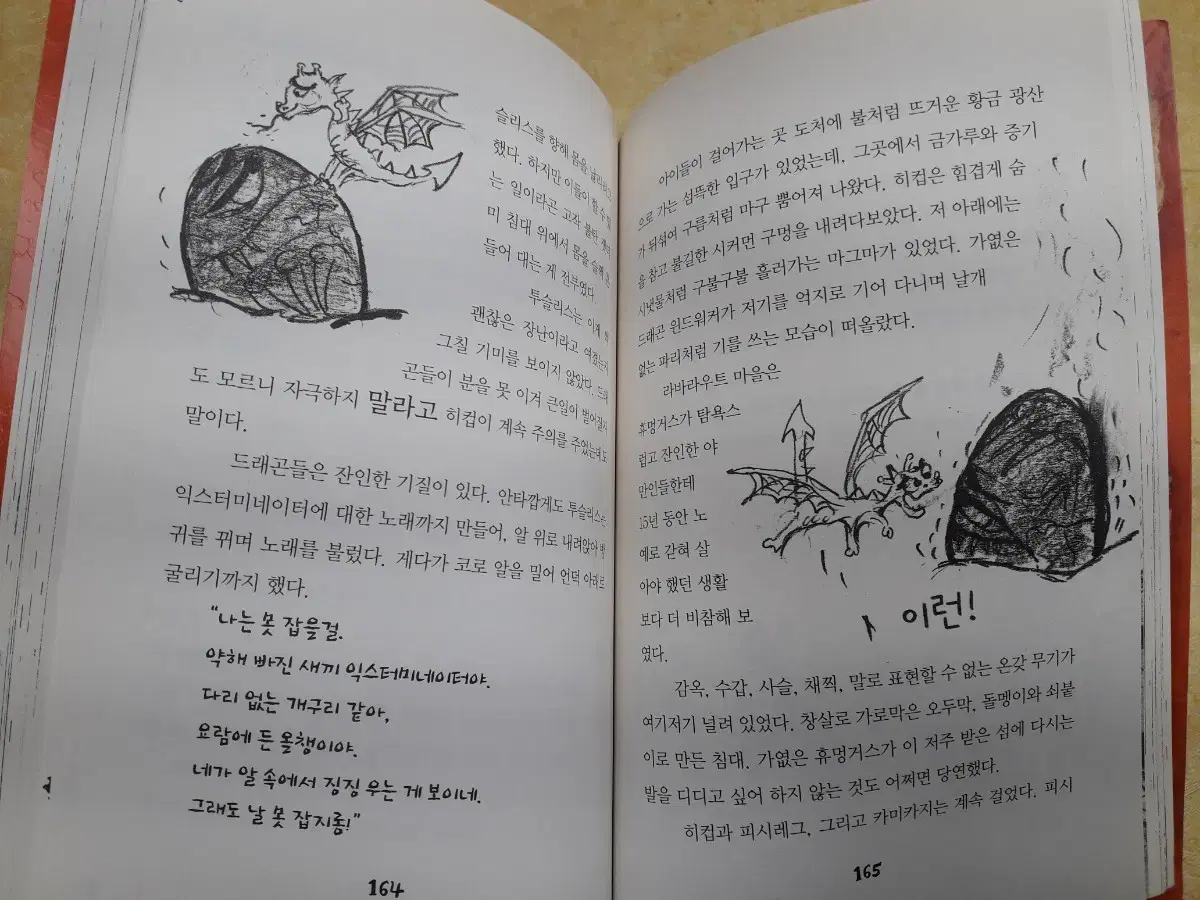 슬리스를 향해 몸을
했다. 하지만 이들이 할 수 있
는 일이라곤 고작
미 침대 위에서 몸을
들어 대는 게 전부였다.
투슬리스는 이게
괜찮은 장난이라고 여겼는지
그칠 기미를 보이지 않았다. 드래
곤들이 분을 못 이겨 큰일이 벌어질지
도 모르니 자극하지 말라고 히컵이 계속 주의를 주었는데도
말이다.
드래곤들은 잔인한 기질이 있다. 안타깝게도 투슬리스는
익스터미네이터에 대한 노래까지 만들어, 알 위로 내려앉아 방
귀를 뀌며 노래를 불렀다. 게다가 코로 알을 밀어 언덕 아래로
굴리기까지 했다.
"나는 못 잡을걸.
약해 빠진 새끼 익스터미네이터야.
다리 없는 개구리 같아,
요람에 든 올챙이야.
네가 알 속에서 징징 우는 게 보이네.
그래도 날 못 잡지롱!"
164
아이들이 걸어가는 곳 도처에 불처럼 뜨거운 황금 광산
으로 가는 섬뜩한 입구가 있었는데, 그곳에서 금가루와 증기
가 뒤섞여 구름처럼 마구 뿜어져 나왔다. 히컵은 힘겹게 숨
을 참고 불길한 시커먼 구멍을 내려다보았다. 저 아래에는
시냇물처럼 구불구불 흘러가는 마그마가 있었다. 가엾은
드래곤 윈드워커가 저기를 억지로 기어 다니며 날개
없는 파리처럼 기를 쓰는 모습이 떠올랐다.
라바라우트 마을은
휴멍거스가 탐욕스
럽고 잔인한 야
만인들한테
15년 동안 노
예로 갇혀 살
아야 했던 생활
보다 더 비참해 보
였다.
이런!
감옥, 수갑, 사슬, 채찍, 말로 표현할 수 없는 온갖 무기가
여기저기 널려 있었다. 창살로 가로막은 오두막, 돌멩이와 쇠붙
이로 만든 침대. 가엾은 휴멍거스가 이 저주 받은 섬에 다시는
발을 디디고 싶어 하지 않는 것도 어쩌면 당연했다.
히컵과 피시레그, 그리고 카미카지는 계속 걸었다. 피시
165